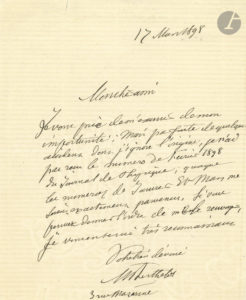 17 Mars 1898
Mon cher ami
Je vous prie de m'excuser de mon
importunité. Mais par suite de quelque
dont j'ignore l'origine, je n'ai
pas reçu le numéro de Février 1898
du Journal de Physique, quoique
les numéros de Janvier Et Mars me
soient exactement parvenus. Je vous
donner l'ordre de me l'envoyer,
Je vous en serai très reconnaissant
Votre bien dévoué
M Berthelot
3 rue Mazarine